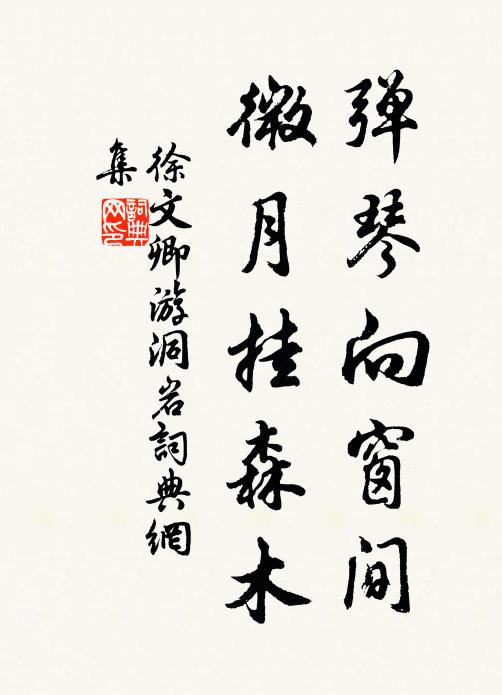 弹琴向窗间
微月挂森木
徐文卿游洞岩詞典網
集
詞典
网印